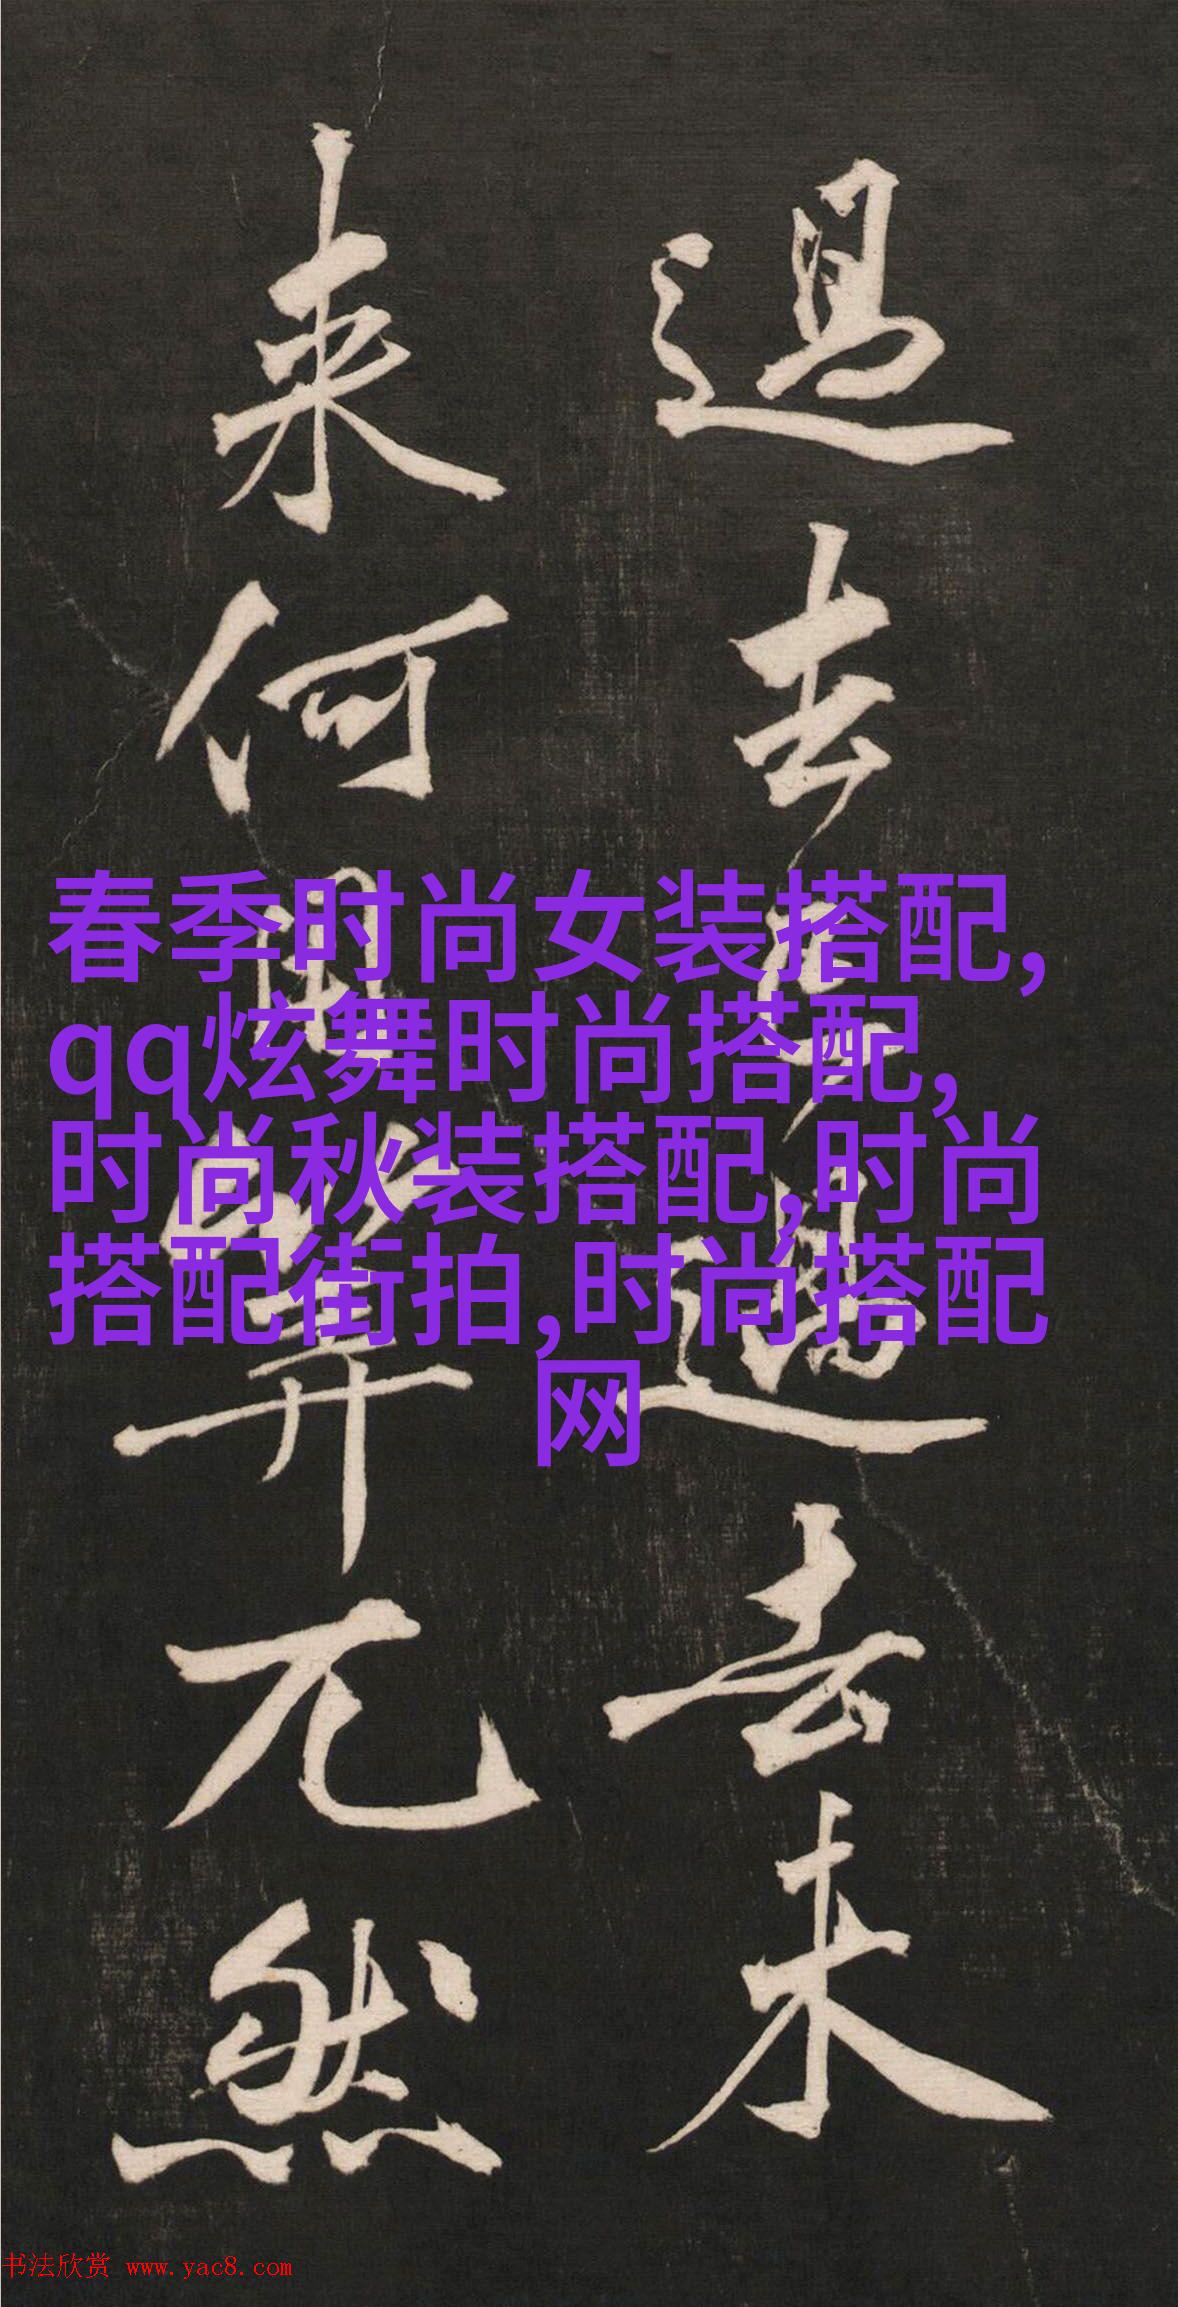 過去事過去未
来何用筭兀然
春季时尚女装搭配,
qq炫舞时尚搭配,
时尚秋装搭配,时尚
搭配街拍,时尚搭配
网
书法欣赏 www.yac8.com